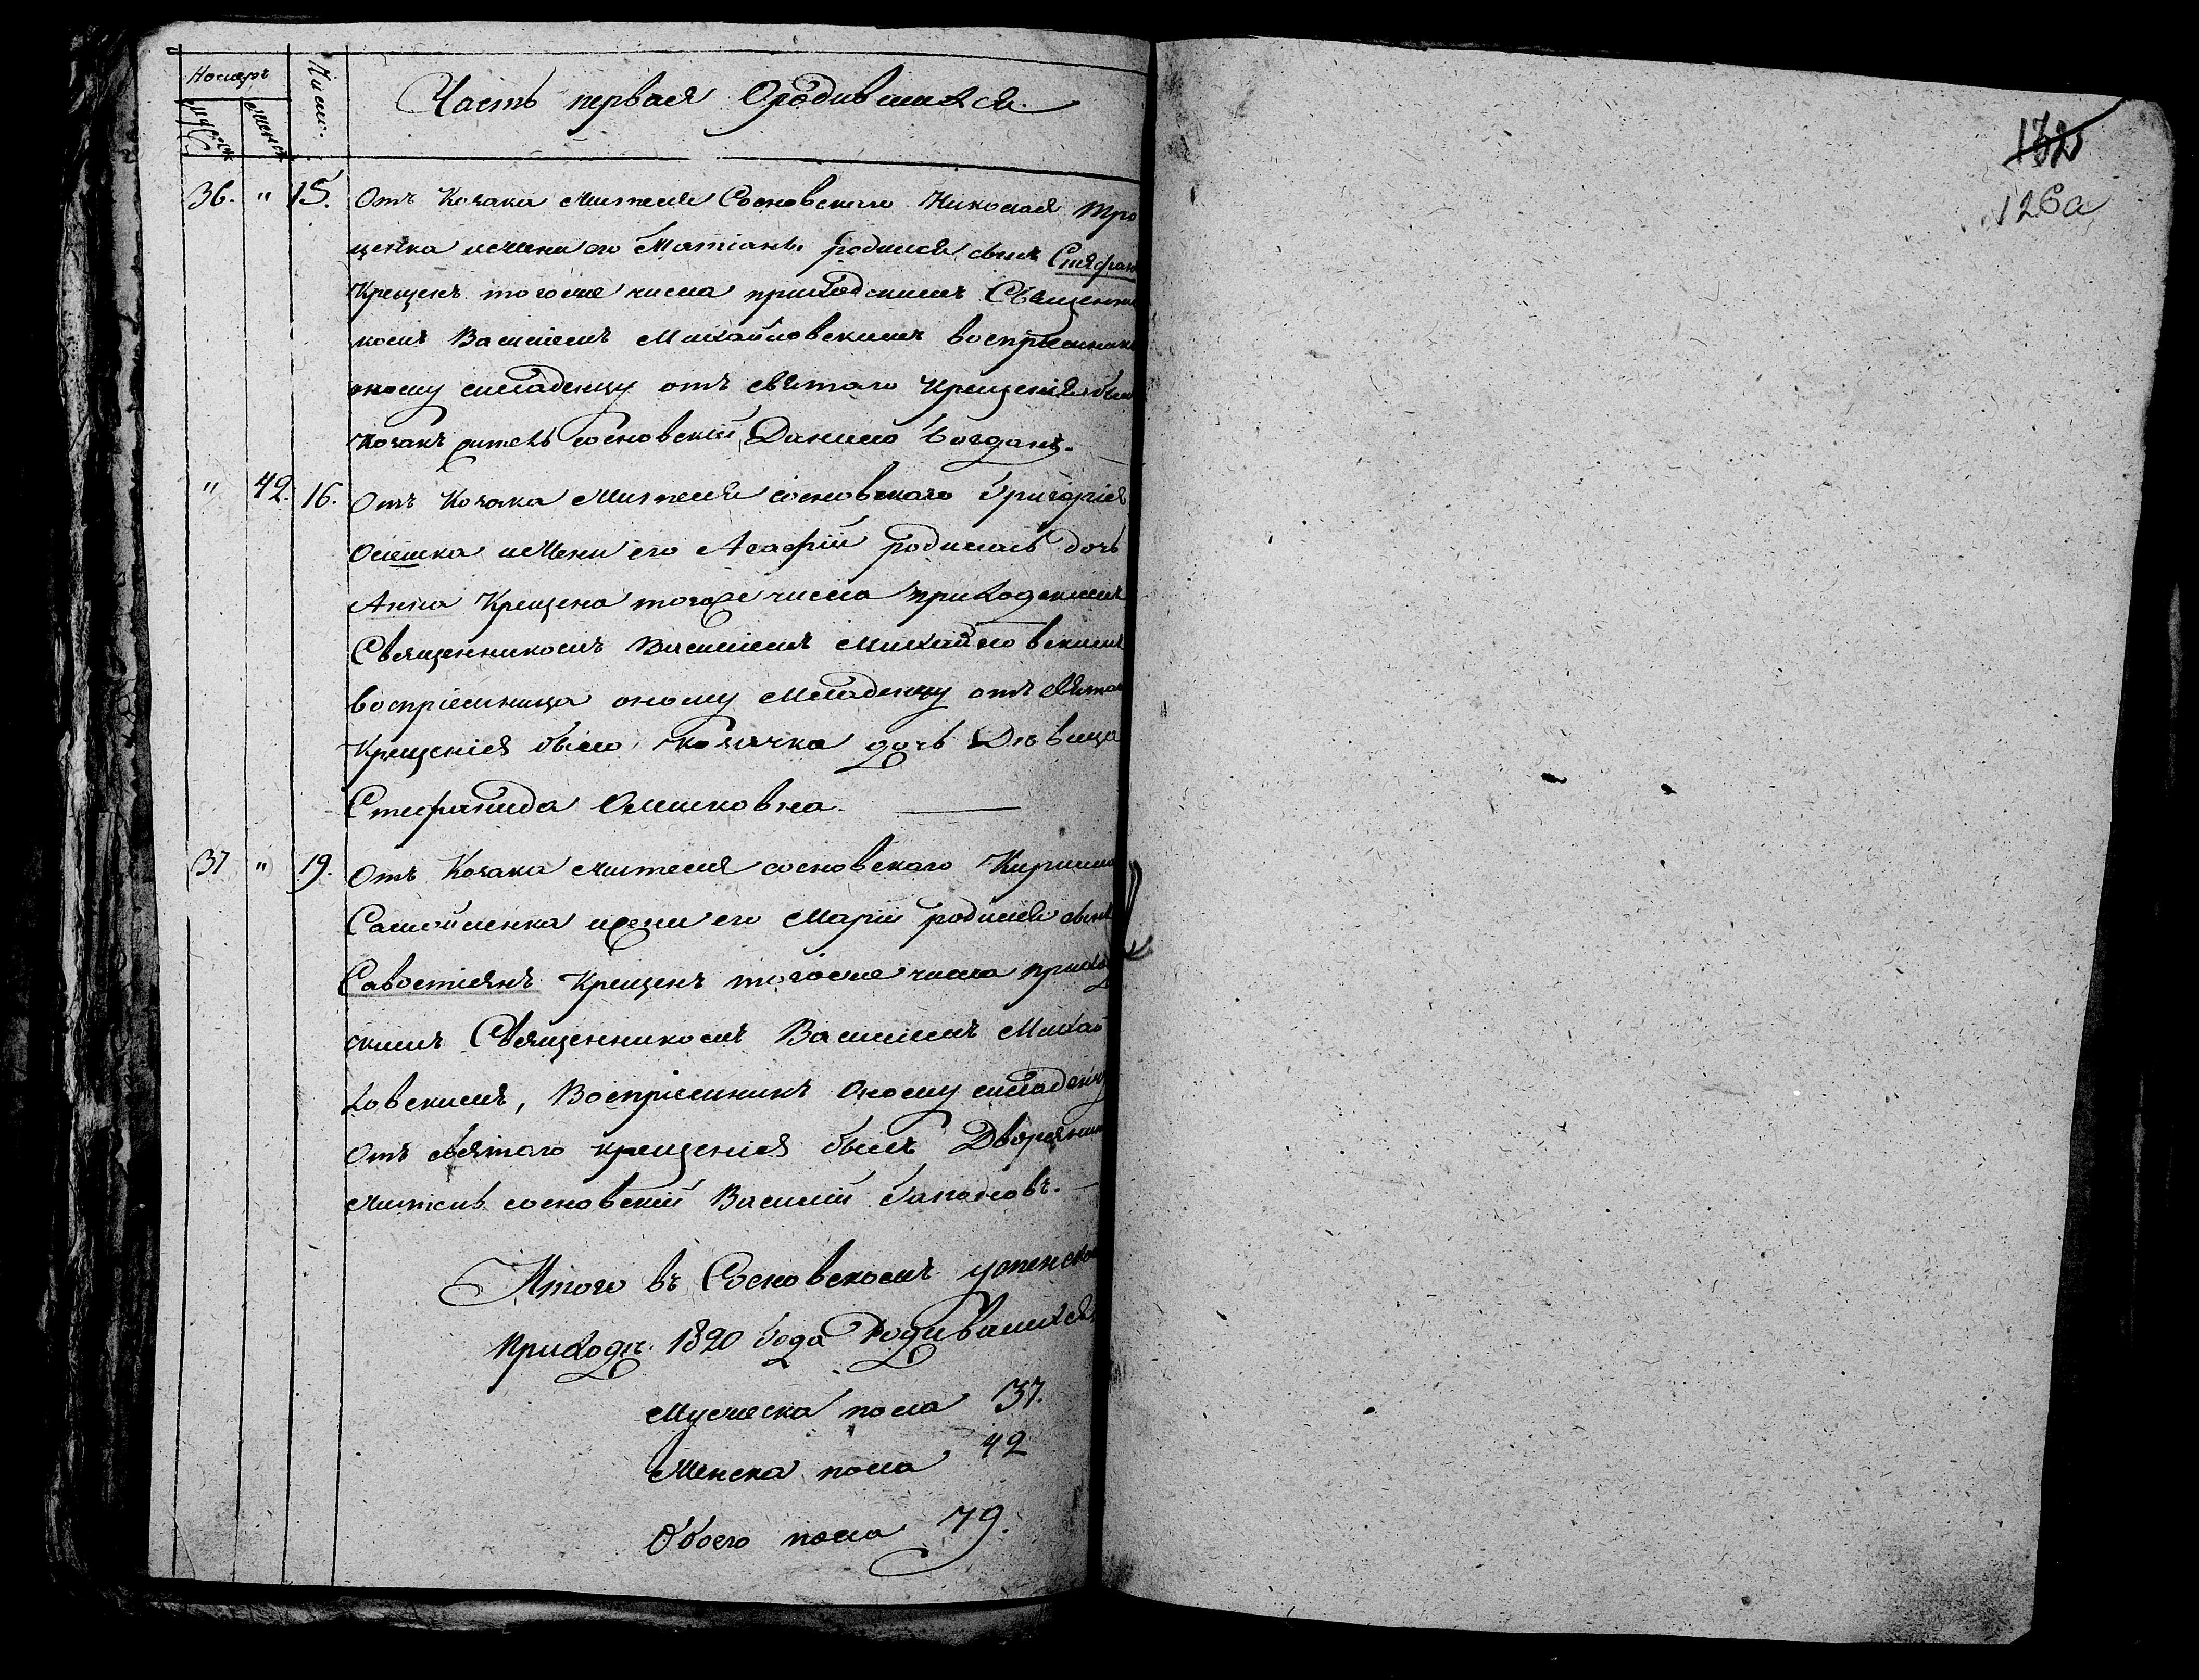 Номеръ
Число.
мужеск
женск
Часть первая Ородившихся.
36. " 15. Отъ Козака жителя Сосновскаго Николая Тро
ценка ижени его Татіаны родился сынъ Стефан
Крещенъ тогоже числа приходскимъ Священни
комъ Василіемъ Михайловскимъ воспріемникъ
оному младенцу отъ святаго Крещенія былъ
Козакъ житель сосновскій Данило Богданъ.
" 42. 16. Отъ Козака жителя сосновскаго Григорія
ижени его Агафіи родилась дочь
Анна Крещена тогоже числа приходскимъ
Священникомъ Василіемъ Михайловскимъ
воспріемница оному Младенцу отъ святаго
Крещенія была козачка дочь Дѣвица
Стефанида
37 " 19. Отъ Козака жителя сосновскаго Кирила
Самойленка ижени его Маріи родился сынъ
Савостіянъ Крещенъ тогоже числа приход
скимъ Священникомъ Василіемъ Михай
ловскимъ, Воспріемникъ Оному младенцу
Отъ святаго крещенія былъ Дворянинъ
житель сосновскій Василій
Итого въ Сосновскомъ успенском
приходѣ 1820 Года Родившихся
Мужеска пола 37.
Женска пола 42
Обоего пола 79.
132
126а